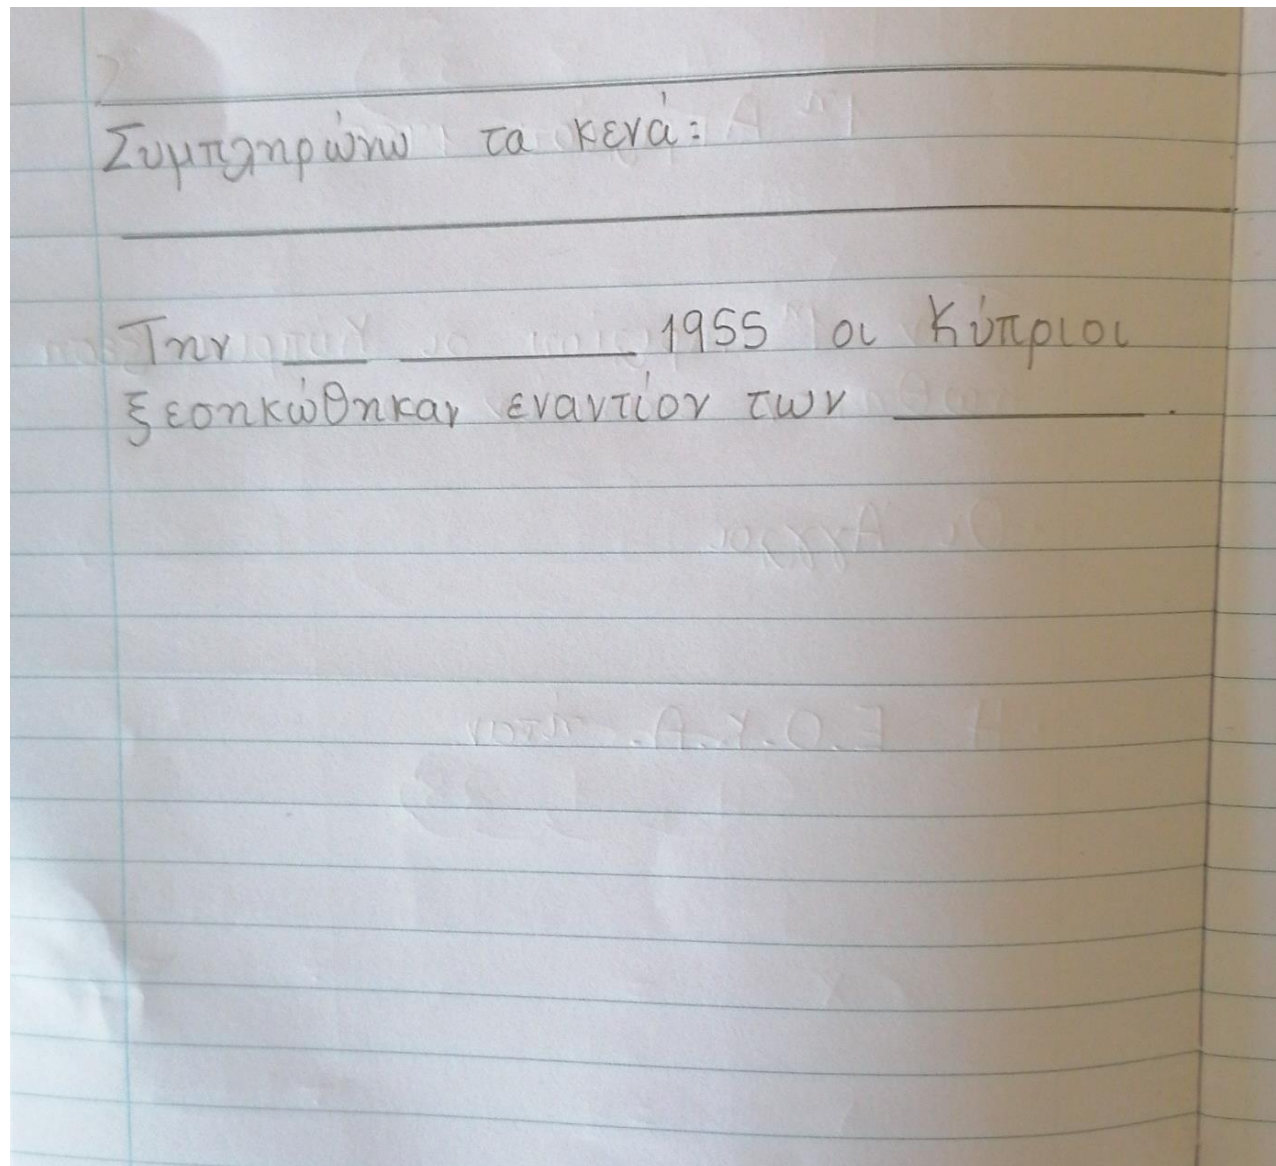 Συμπληρώνω τα κενά:
Την ___ ________ 1955 οι Κύπριοι
ξεσηκώθηκαν εναντίον των _________.